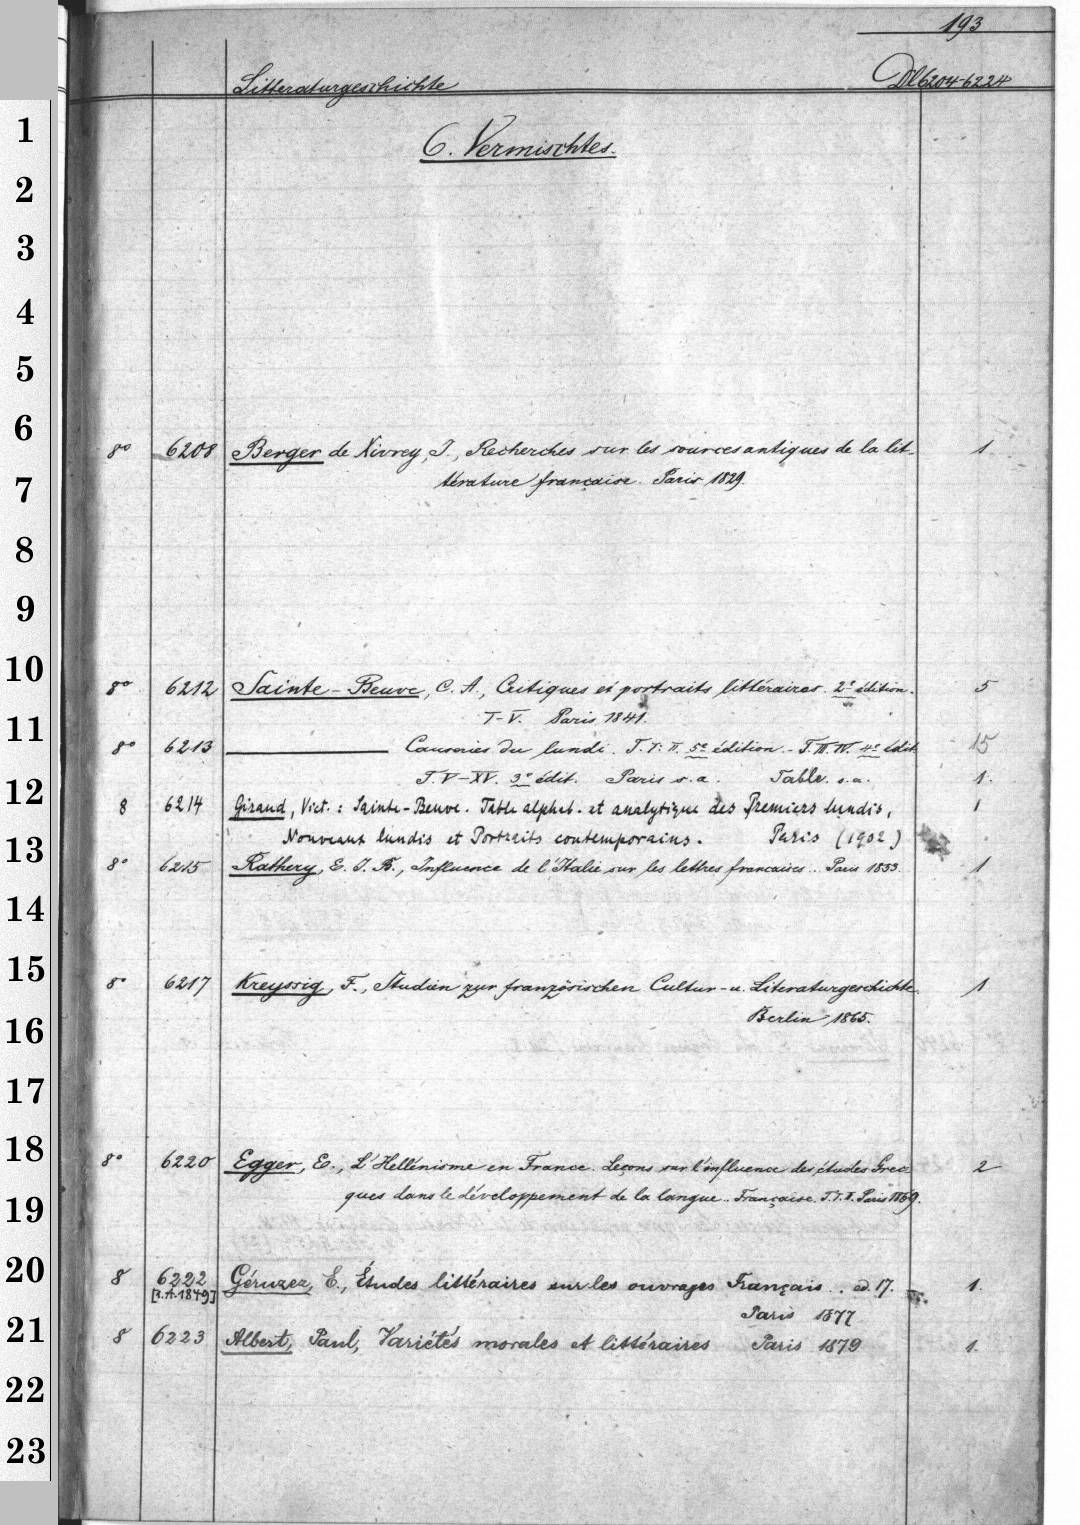 193
Litteraturgeschichte Dl 6204-6224
6. Vermischtes.
1
2
3
4
5
6
8° 6208 Berger de Xivrey, J., Recherches sur les sources antiques de la lit- 1
7
térature française. Paris 1829.
8
9
10
8° 6212 Sainte-Beuve, C. A., Critiques et portraits littéraires. 2e édition. 5
11
I-V. Paris 1841.
8° 6213 ——— Causeries du lundi. T. I. II. 5e édition. - T. III. IV. 4e édit. 15
12
T. V-XV. 3e édit. Paris s. a. Table. s. a. 1.
8 6214 Giraud, Vict.: Sainte-Beuve. Table alphab. et analytique des Premiers lundis, 1
Nouveaux lundis et Portraits contemporains. Paris (1902)
13
8° 6215 Rathery, E. J. B., Influence de l'Italie sur les lettres françaises. Paris 1853. 1
14
15
8° 6217 Kreyssig, F., Studien zur französischen Cultur- u. Literaturgeschichte. 1
Berlin 1865.
16
17
18
8° 6220 Egger, E., L'Hellénisme en France. Leçons sur l'influence des études Grec- 2
19
ques dans le développement de la langue Française. T. I. II. Paris 1869.
20
8 6222 Géruzez, E., Études littéraires sur les ouvrages Français.. ed. 17. 1.
[s.A. 1849]
Paris 1877
21
8 6223 Albert, Paul, Variétés morales et littéraires Paris 1879 1.
22
23